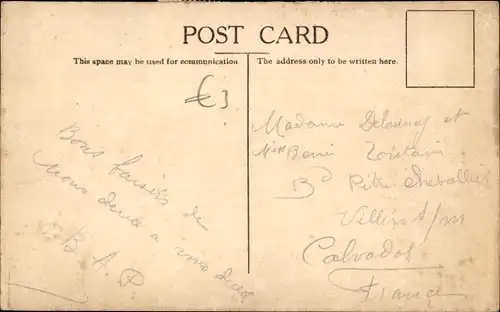 POST CARD
This space may be used for communication
The address only to be written here.
€3
Bons baisers de
nous deux a vous deux
B. A. P.
Madame Delaunay et
Villers s/m
Calvados
France